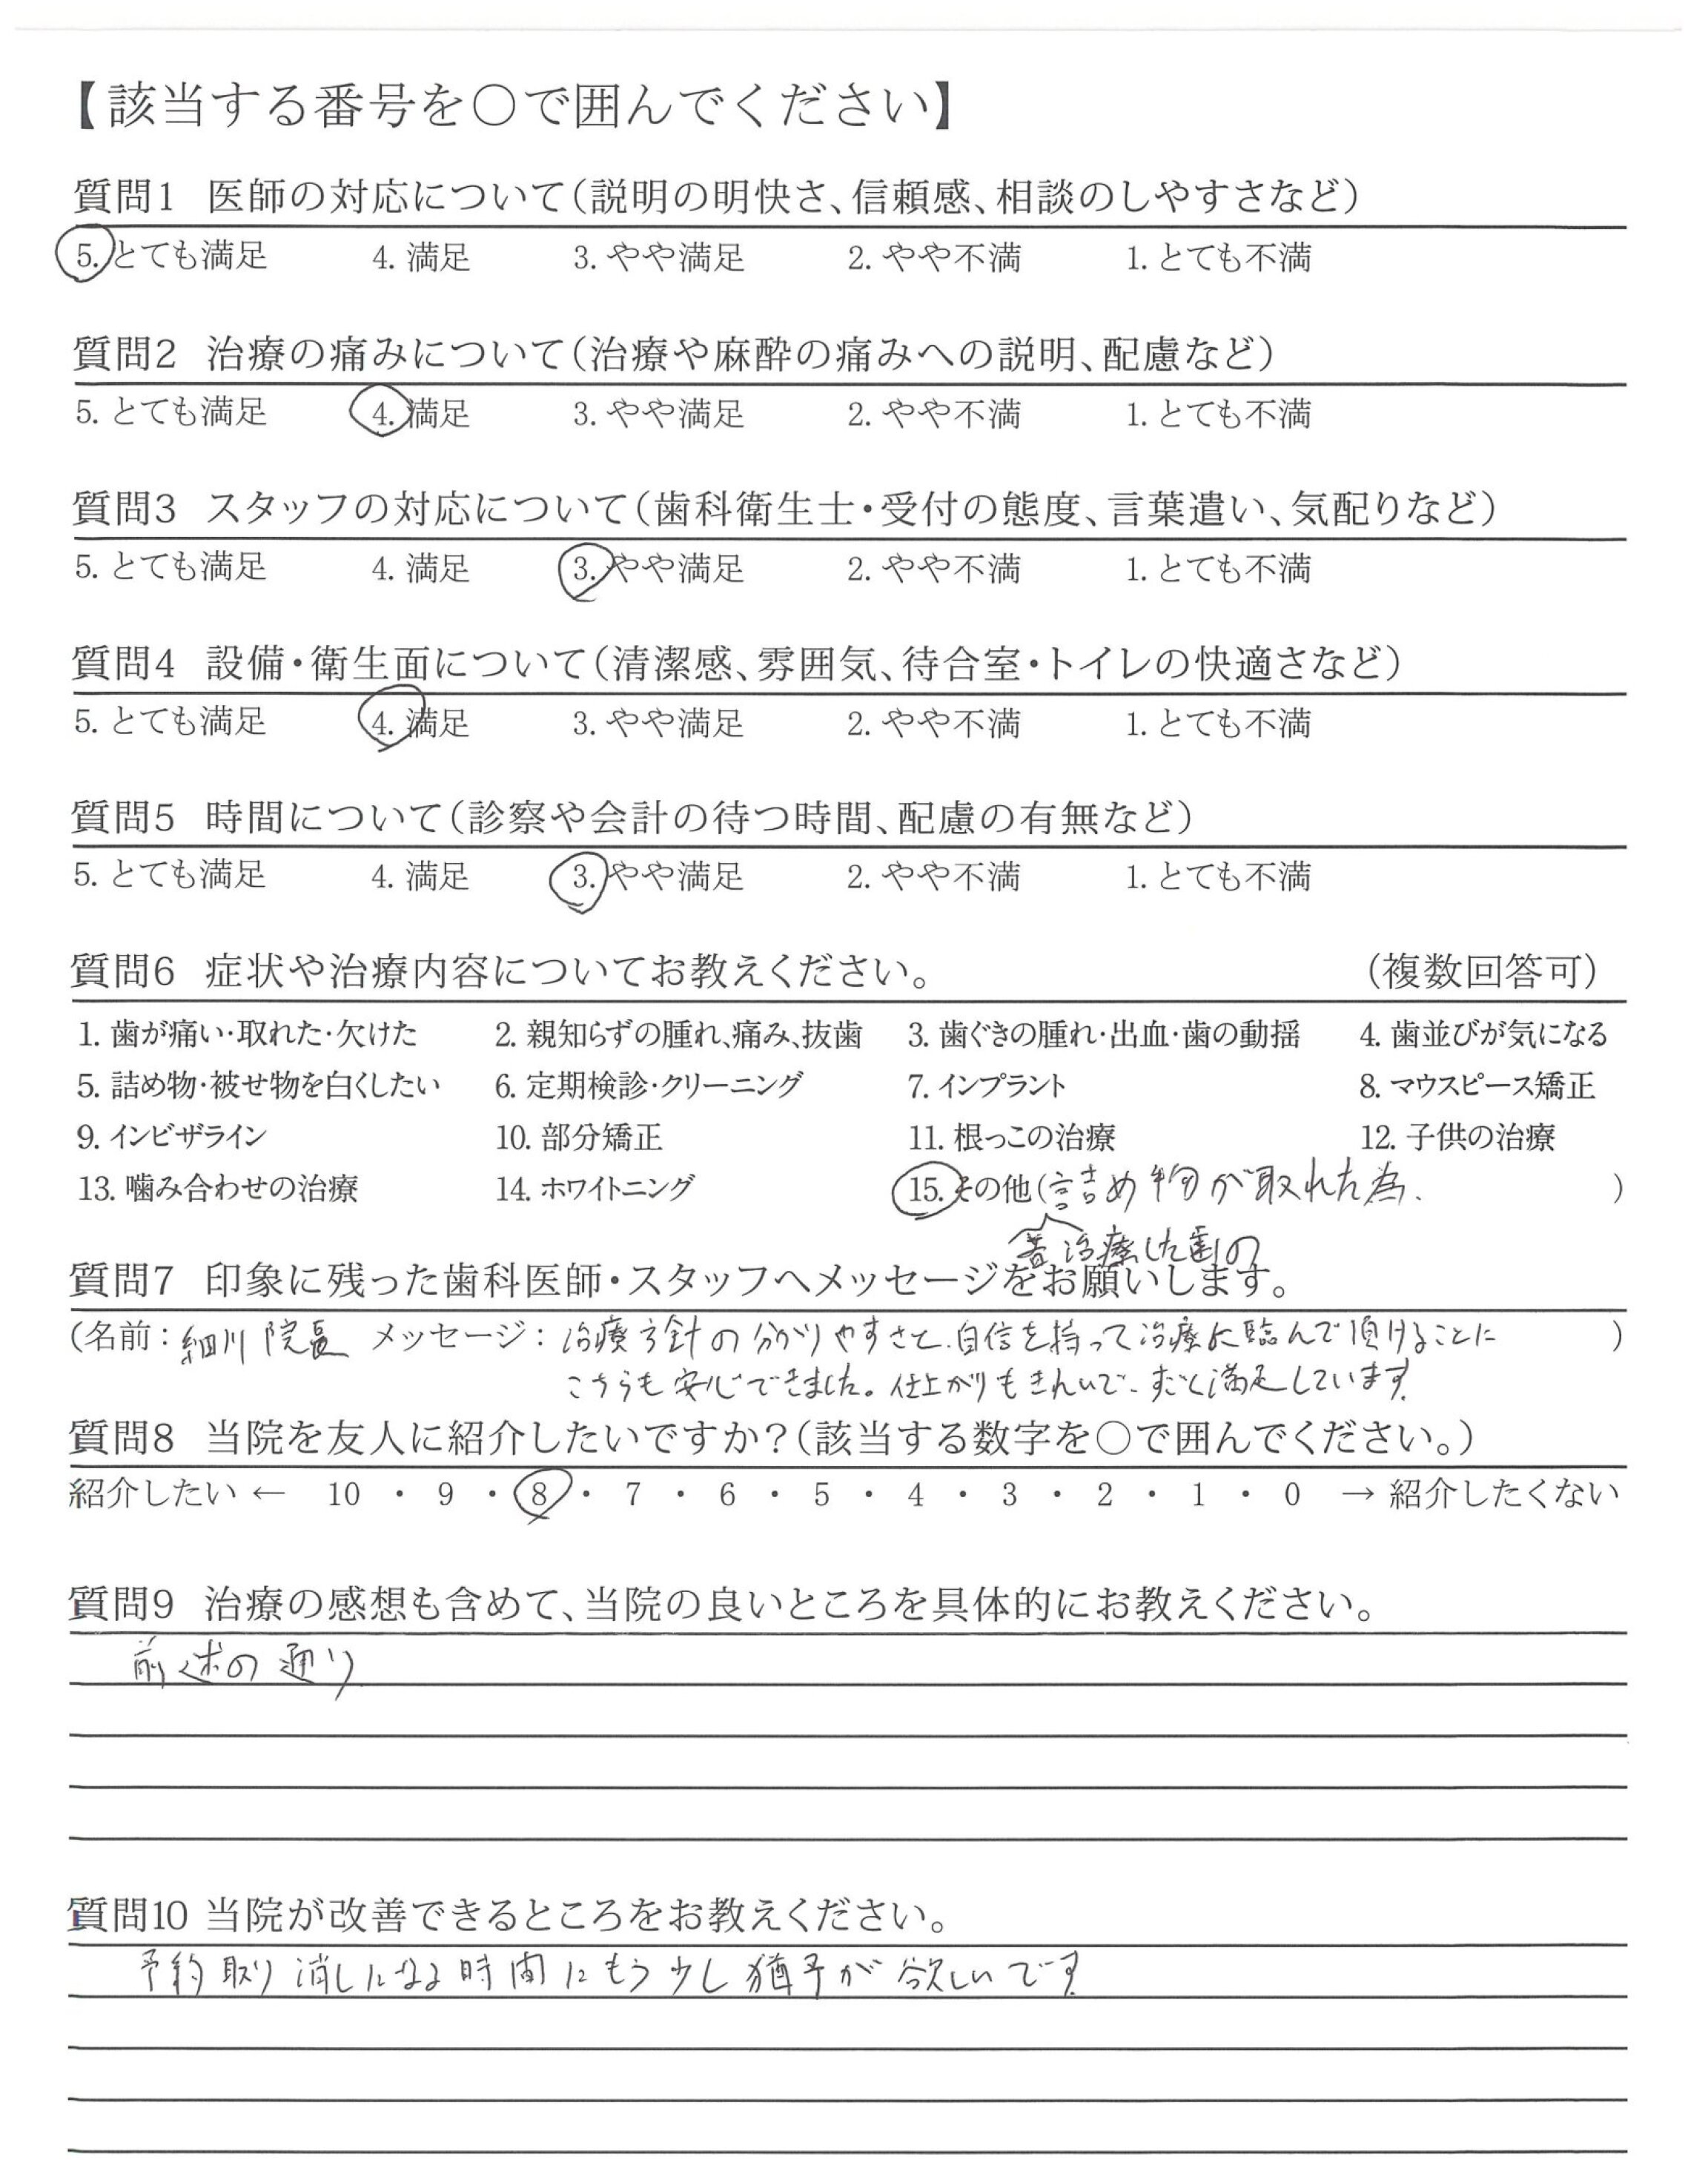 【該当する番号を○で囲んでください】
質問1 医師の対応について（説明の明快さ、信頼感、相談のしやすさなど）
5. とても満足 4. 満足 3. やや満足 2. やや不満 1. とても不満
質問2 治療の痛みについて（治療や麻酔の痛みへの説明、配慮など）
5. とても満足 4. 満足 3. やや満足 2. やや不満 1. とても不満
質問3 スタッフの対応について（歯科衛生士・受付の態度、言葉遣い、気配りなど）
5. とても満足 4. 満足 3. やや満足 2. やや不満 1. とても不満
質問4 設備・衛生面について（清潔感、雰囲気、待合室・トイレの快適さなど）
5. とても満足 4. 満足 3. やや満足 2. やや不満 1. とても不満
質問5 時間について（診察や会計の待つ時間、配慮の有無など）
5. とても満足 4. 満足 3. やや満足 2. やや不満 1. とても不満
質問6 症状や治療内容についてお教えください。 （複数回答可）
1. 歯が痛い・取れた・欠けた 2. 親知らずの腫れ、痛み、抜歯 3. 歯ぐきの腫れ・出血・歯の動揺 4. 歯並びが気になる
5. 詰め物・被せ物を白くしたい 6. 定期検診・クリーニング 7. インプラント 8. マウスピース矯正
9. インビザライン 10. 部分矯正 11. 根っこの治療 12. 子供の治療
13. 噛み合わせの治療 14. ホワイトニング 15. その他（詰め物が取れた為、 ）
昔治療した歯の
質問7 印象に残った歯科医師・スタッフへメッセージをお願いします。
（名前：細川院長 メッセージ：治療方針の分かりやすさと、自信を持って治療に臨んで頂けることに ）
こちらも安心できました。仕上がりもきれいで、すごく満足しています。
質問8 当院を友人に紹介したいですか？（該当する数字を○で囲んでください。）
紹介したい ← 10 ・ 9 ・ 8 ・ 7 ・ 6 ・ 5 ・ 4 ・ 3 ・ 2 ・ 1 ・ 0 → 紹介したくない
質問9 治療の感想も含めて、当院の良いところを具体的にお教えください。
前述の通り
質問10 当院が改善できるところをお教えください。
予約取り消しになる時間にもう少し猶予が欲しいです